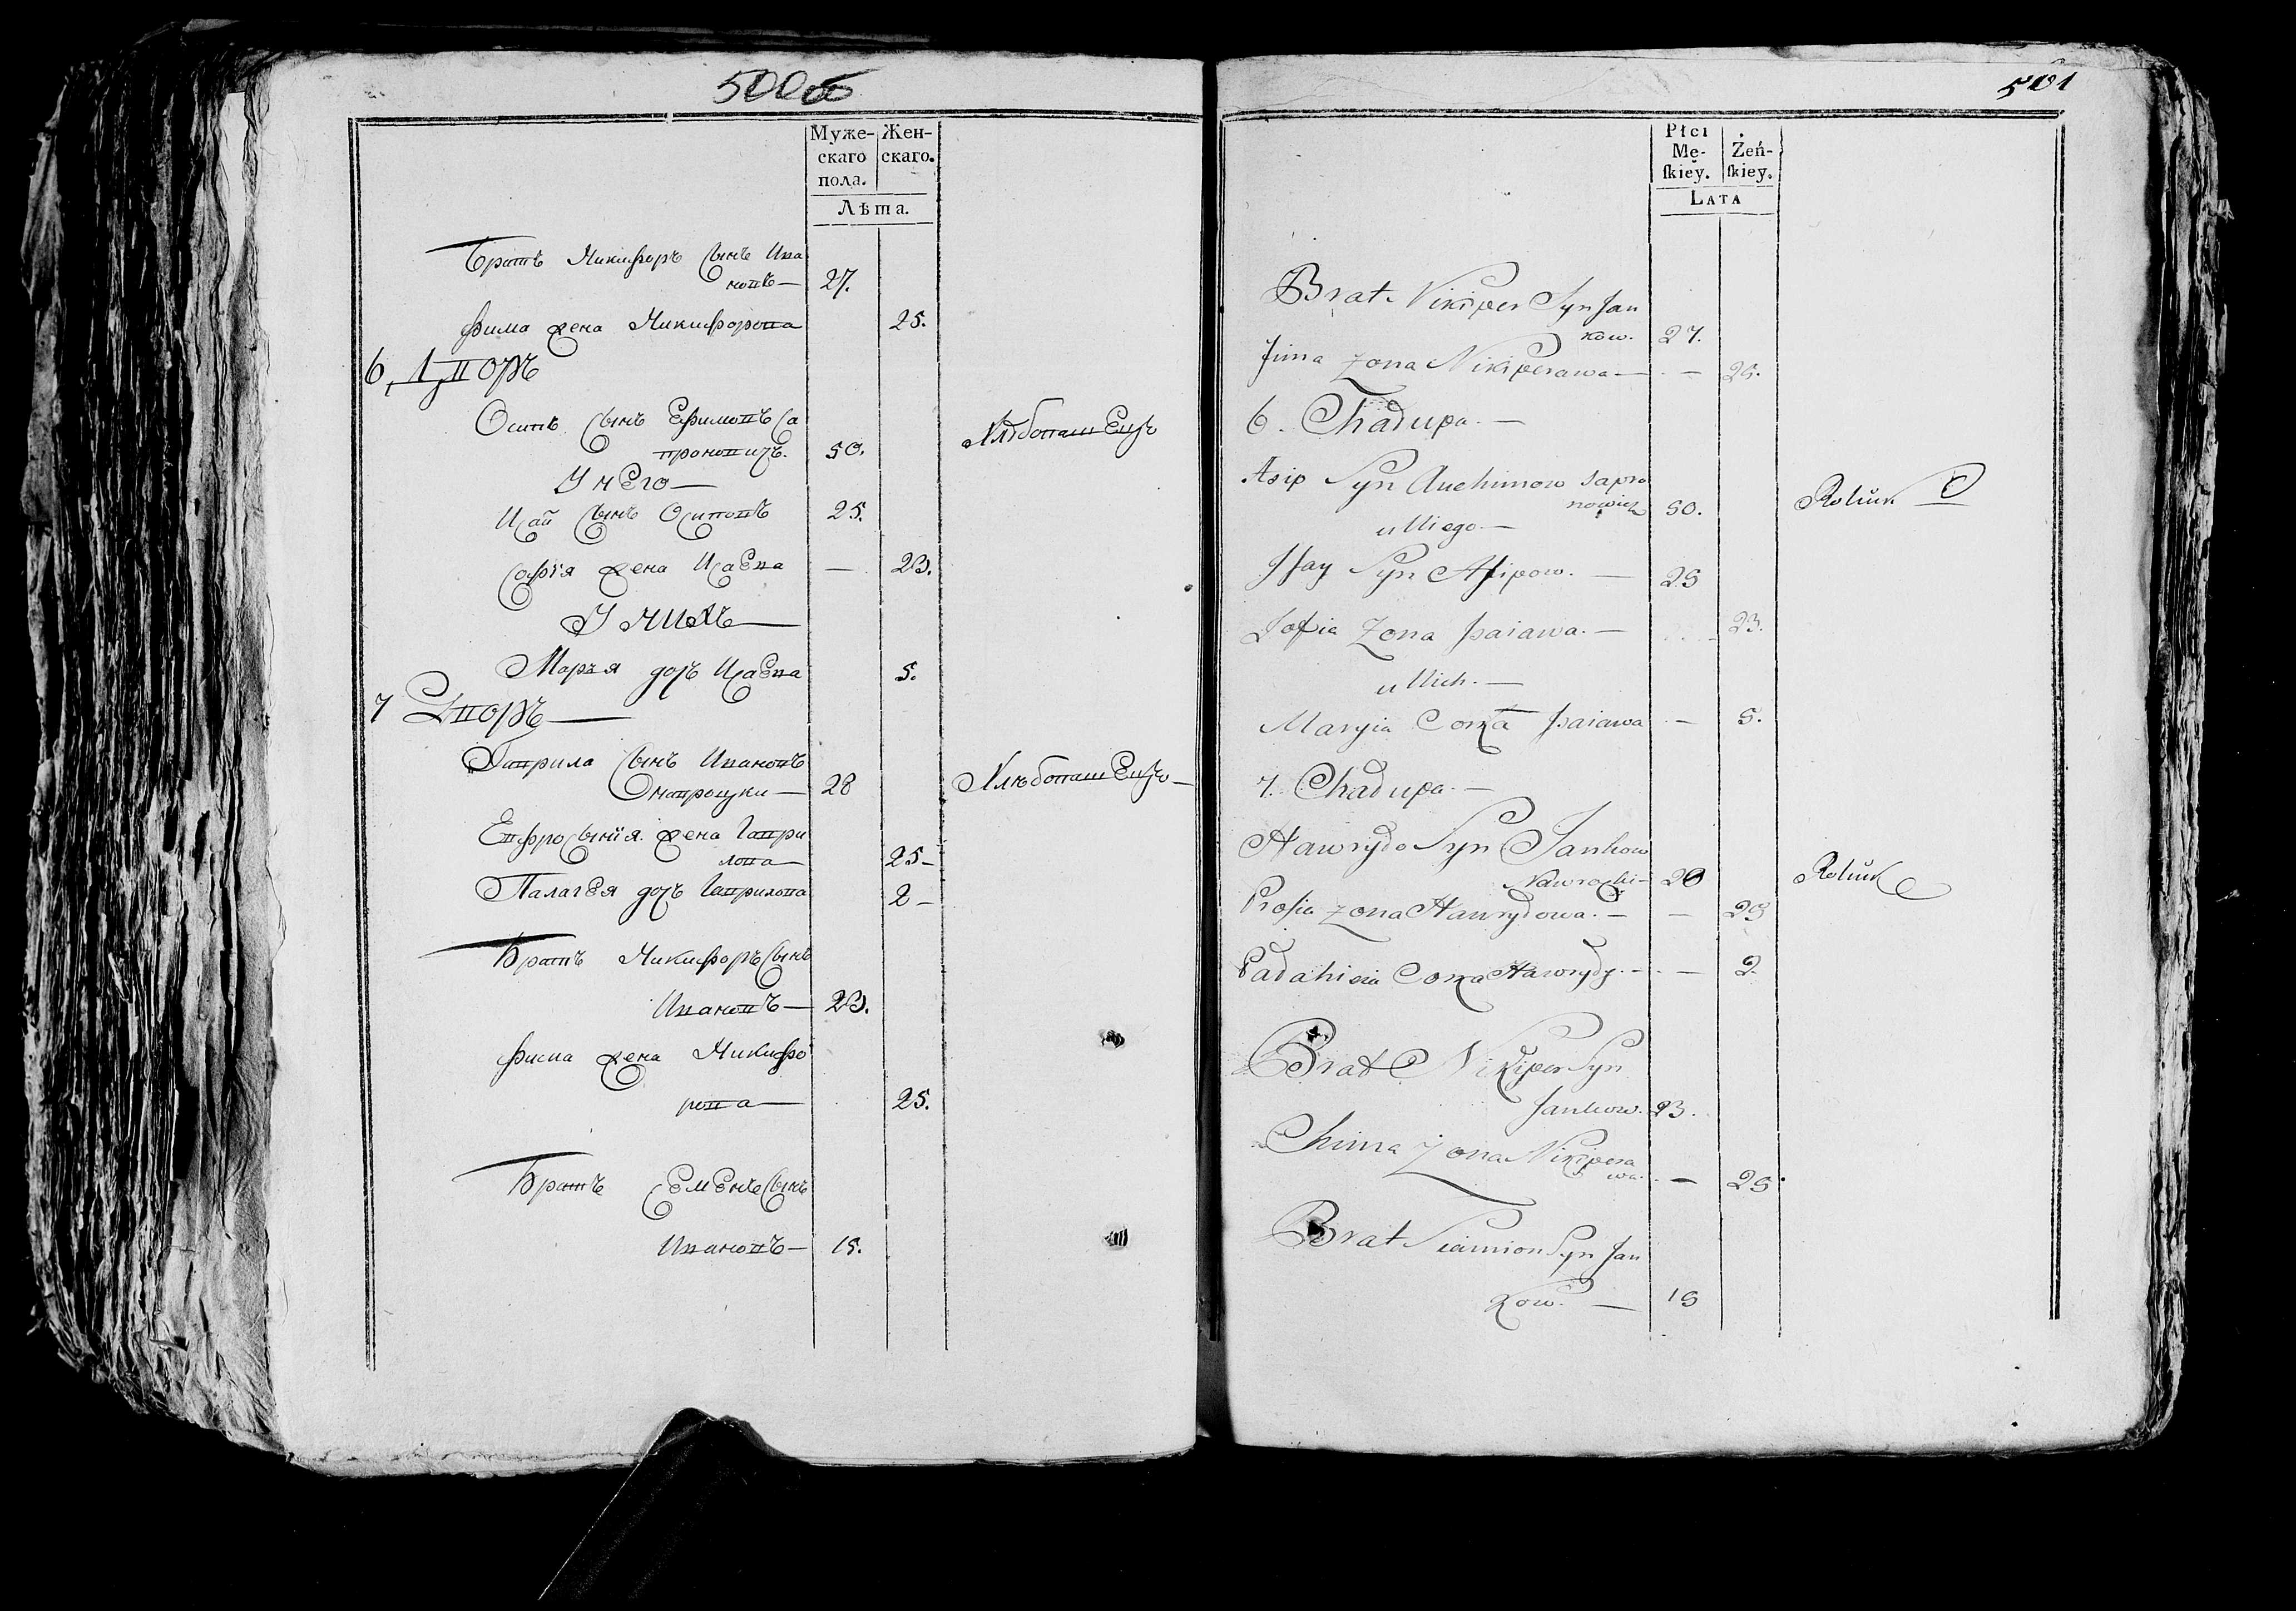 500об
Муже-
скаго
пола.
Жен-
скаго.
Лѣта.
Братъ Никифоръ Сынъ Ива
новъ — 27.
Фима жена Никифорова 25.
6, Дворъ
Осипъ Сынъ Ефимовъ Са
проновичъ. 50. Хлѣбопашецъ
У него —
Исай Сынъ Осиповъ 25.
Софїя жена Исаева — 23.
У нихъ —
Марья дочь Исаева 5.
7 Дворъ —
Гаврила Сынъ Ивановъ
Онавроцки — 28 Хлѣбопашецъ —
Евфросынїя жена Гаври
лова 25 —
Палагея дочь Гаврилова 2 —
Братъ Никифоръ Сынъ
Ивановъ — 23.
Фима жена Никифо
рова 25.
Братъ Семенъ Сынъ
Ивановъ — 15.
501
Płci
Mę-
ſkiey.
Żeń-
ſkiey.
LATA
Brat Nikiper Syn Jan
kow. 27.
Fima Zona Nikiperawa — — 25.
6. Chadupa. —
Asip Syn Auchimow Sapro
nowicz 50. Rolnik
u Niego —
Jsay Syn Asipow. — 25
Zofia Zona Jsaiawa. — — 23.
u Nich. —
Maryia Corka Jsaiawa — 5.
7. Chadupa. —
Hawrydo Syn Jankow
Nawrocki — 28 Rolnik
Prosia Zona Hawrydowa. — — 25
Padahieia Corka Hawrydy. — — 2.
Brat Nikiper Syn
Jankow. 23.
Chima Zona Nikipera
wa. — 25
Brat Siamion Syn Jan
kow. — 15